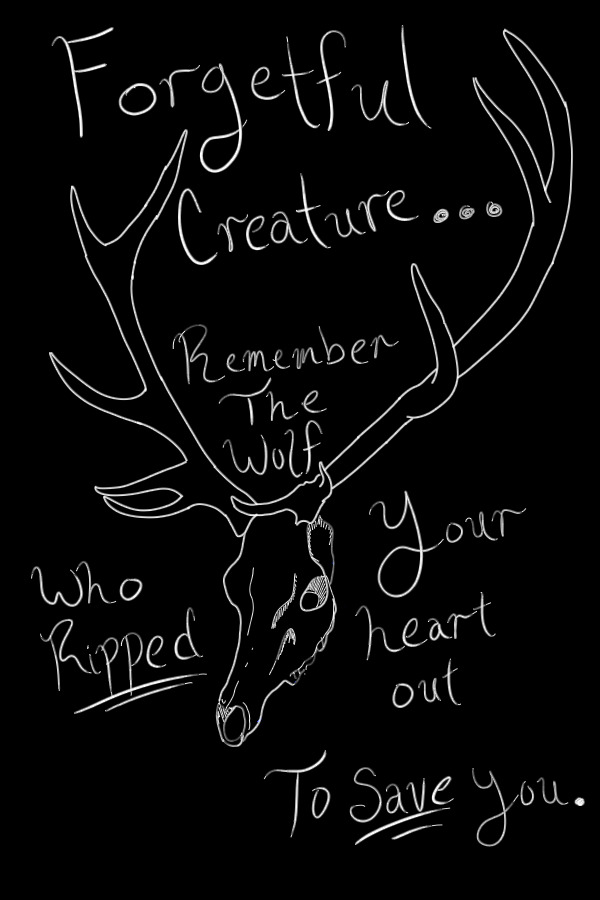 Forgetful
Creature...
Remember
The
Wolf
Who
Ripped
Your
heart
out
To Save you.